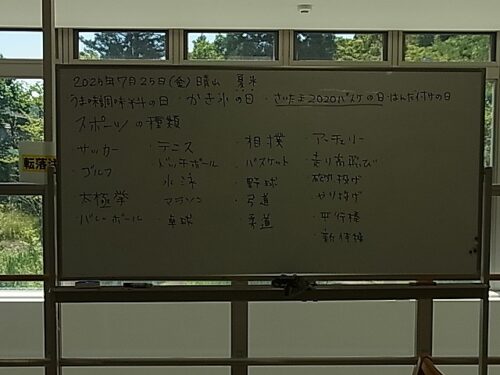 2025年7月25日(金)晴れ
うま味調味料の日・かき氷の日・さいたま2020バスケの日・はんだ付けの日
スポーツの種類
サッカー ・テニス ・相撲 アーチェリー
ゴルフ ・ドッチボール ・バスケット ・走り高跳び
太極拳 水泳 ・野球 砲丸投げ
バレーボール マラソン ・弓道 ・やり投げ
・卓球 ・柔道 ・平行棒
転落注